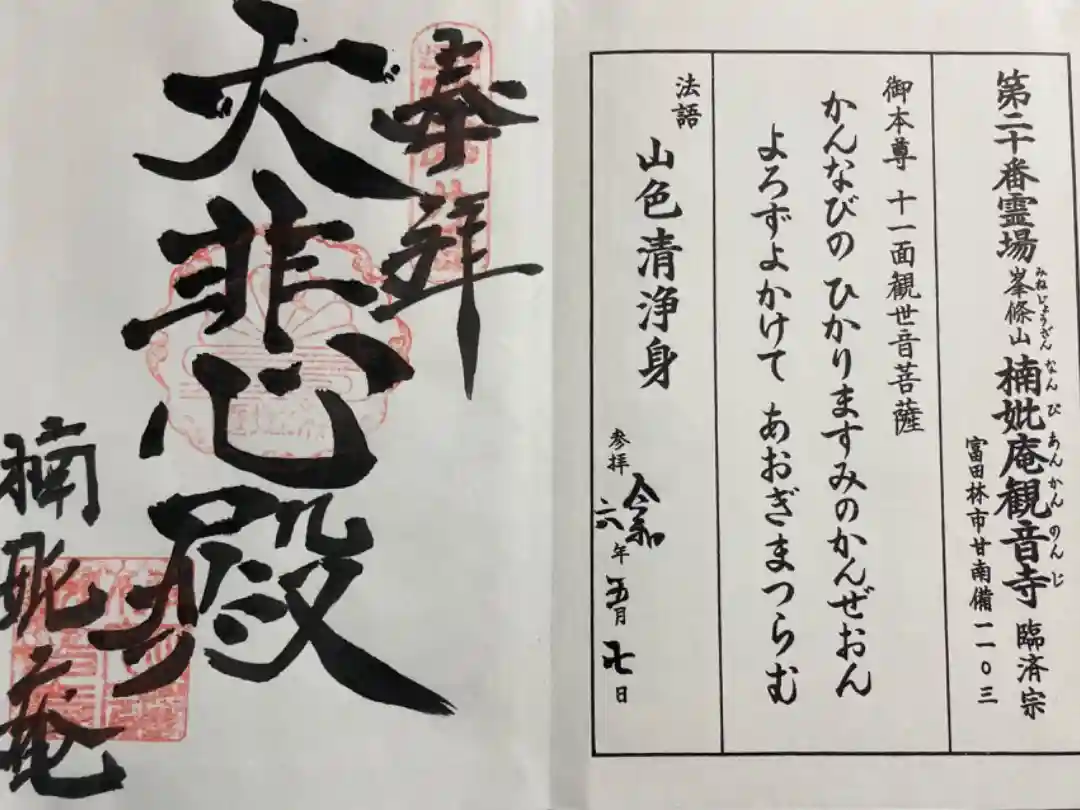 第二十番霊場 峯條山 楠妣庵観音寺 臨済宗
みねじょうざん なんぴあんかんのんじ
富田林市甘南備一一〇三
御本尊 十一面観世音菩薩
かんなびの ひかりますみのかんぜおん
よろずよかけて あおぎまつらむ
法語
山色清浄身
参拝 令和六年五月廿七日
奉拝
大悲心殿
楠妣庵